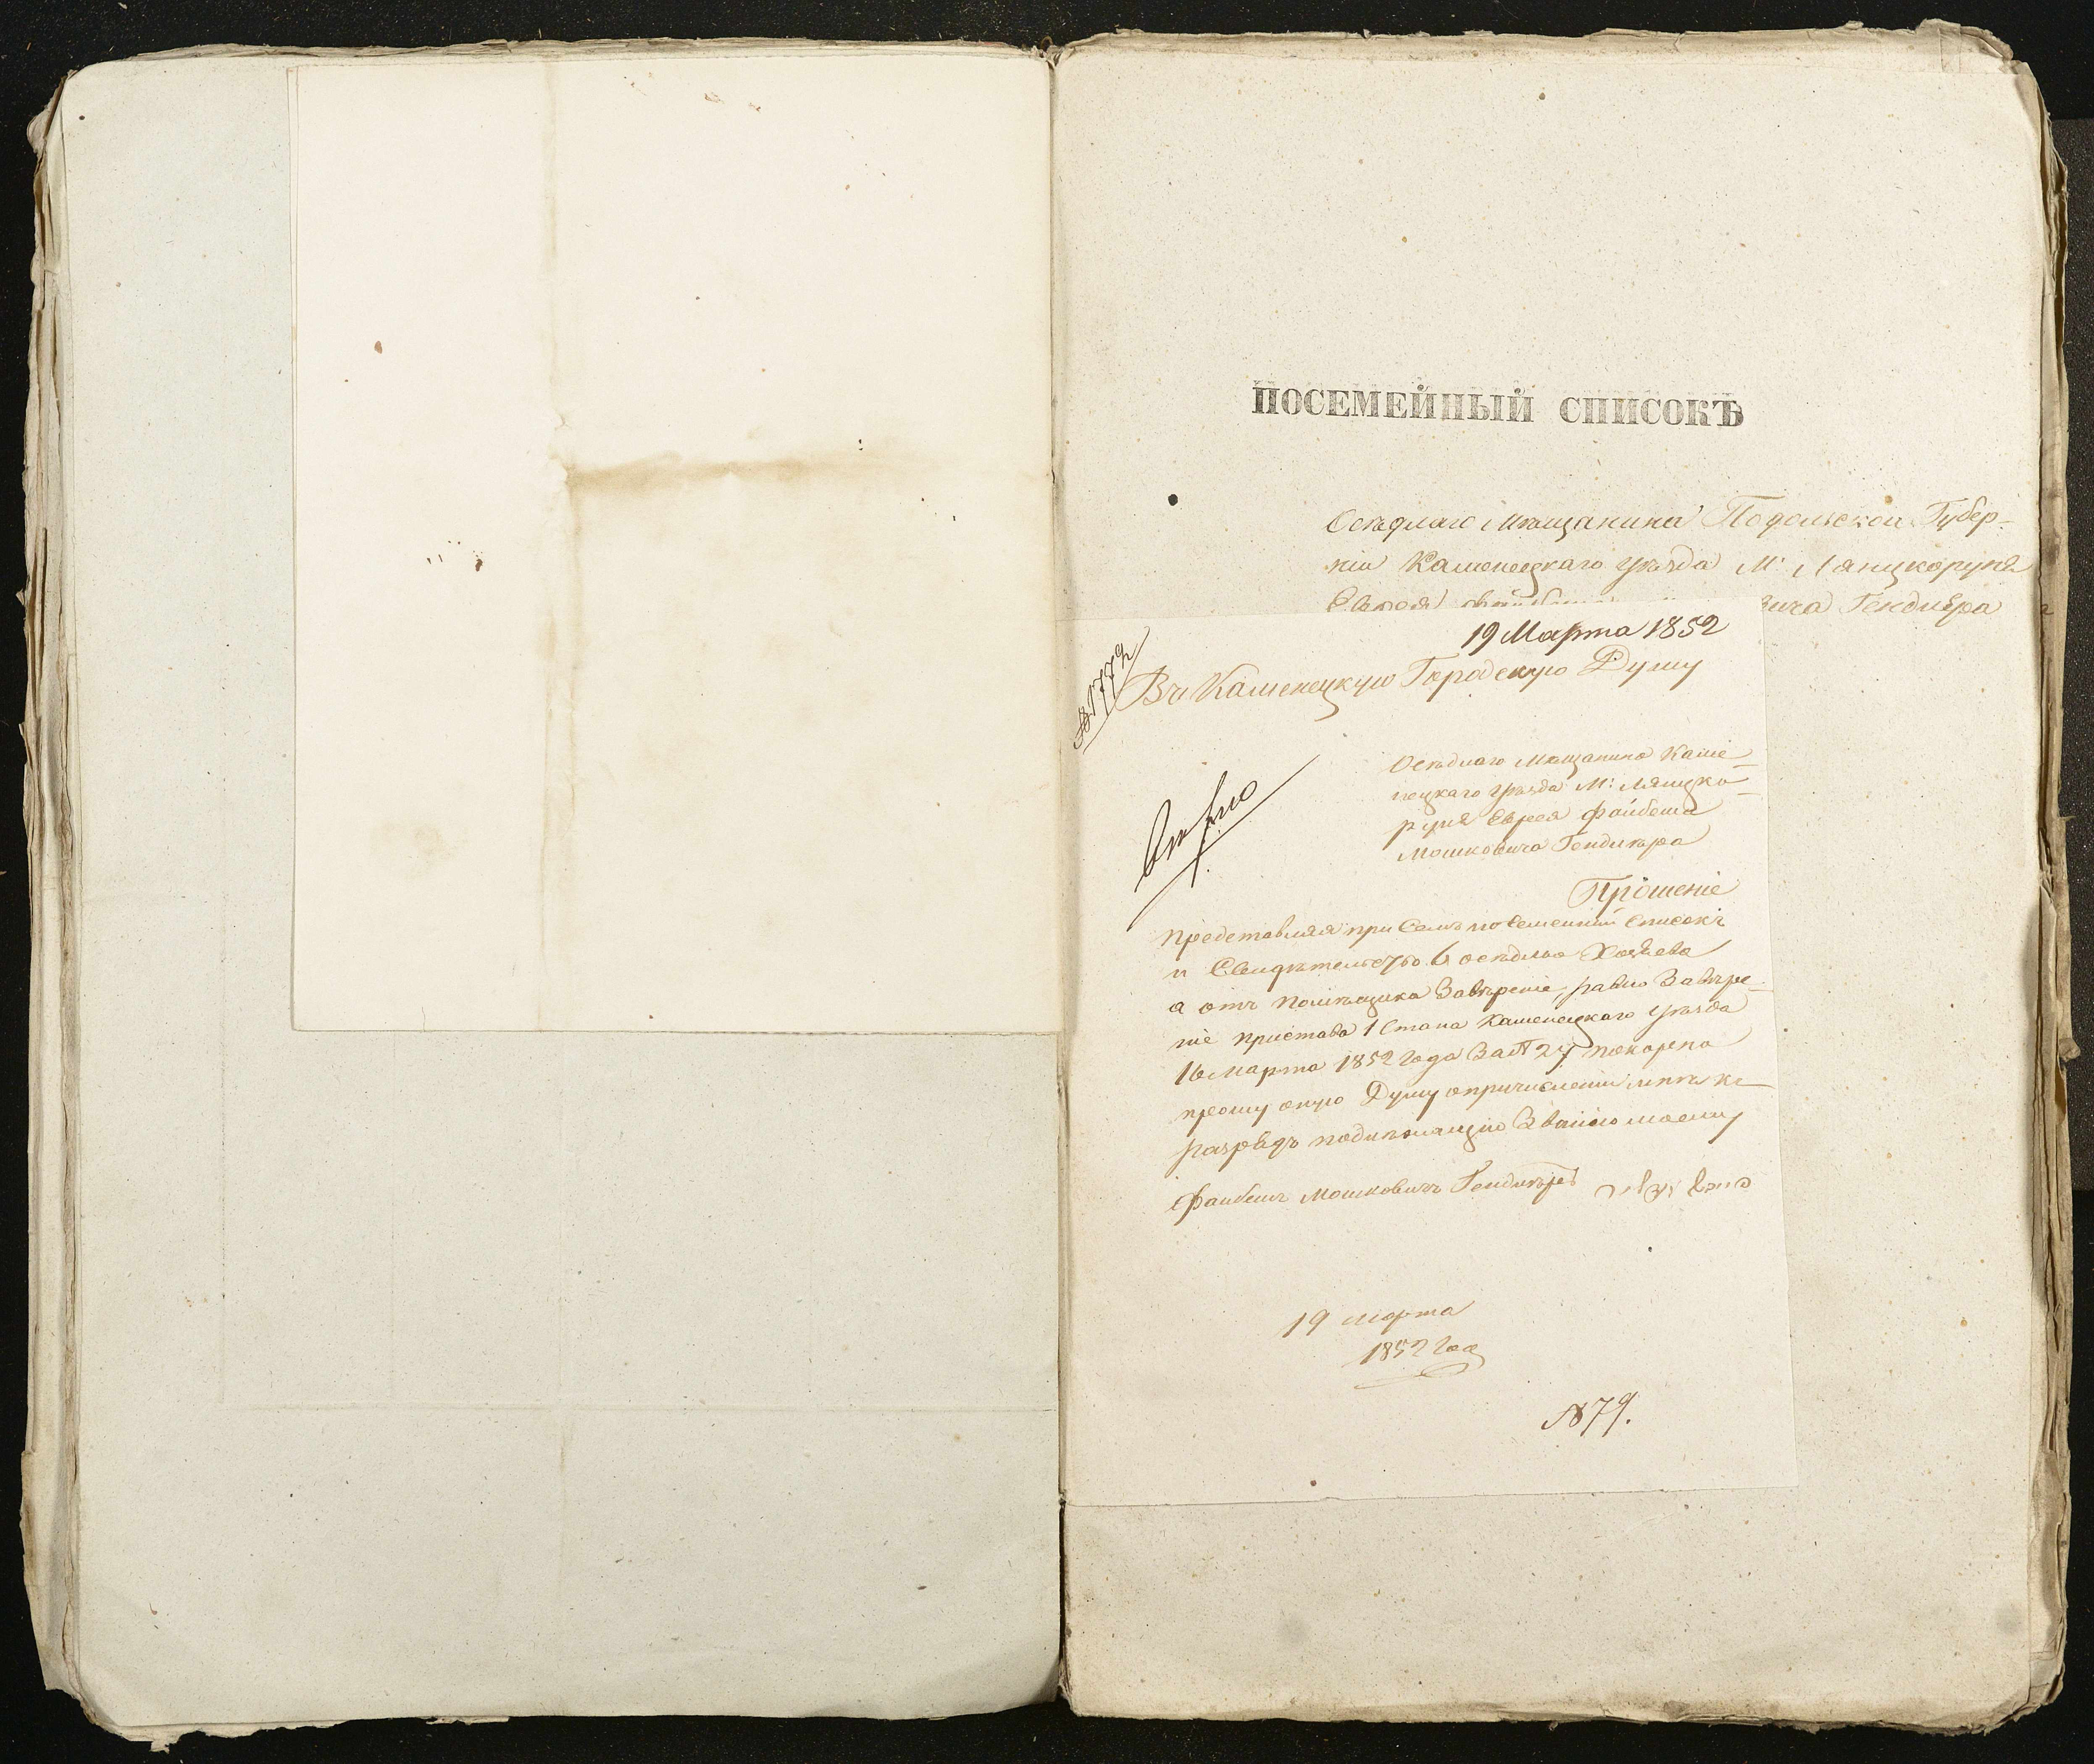 ПОСЕМЕЙНЫЙ СПИСОКЪ
Осѣдлаго Мѣщанина Подольской Губер-
ніи Каменецкаго уѣзда М: Ланцкоруня
Еврея вича Гендлѣра
19 Марта 1852
№ 1772
Въ Каменецкую Городскую Думу
Осѣдлаго Мѣщанина Каме-
нецкаго уѣзда М: Ляницко-
руня Еврея Файбеша
Мошковича Гендлѣра
Прошеніе
Представляя при Семъ посемейный Списокъ
и Свидѣтельство 6 осѣдлыхъ Хозяевъ
а отъ помѣщика Завѣреніе, равно Завѣре-
ніе пристава 1 Стана Каменецкаго уѣзда
16 Марта 1852 года За № 27 покорно
прошу оную Думу опричисленіи меня къ
разряду подлѣжащую Званію моему
Файбешъ Мошковичъ Гендлѣръ
19 марта
1852 Год
№ 79.